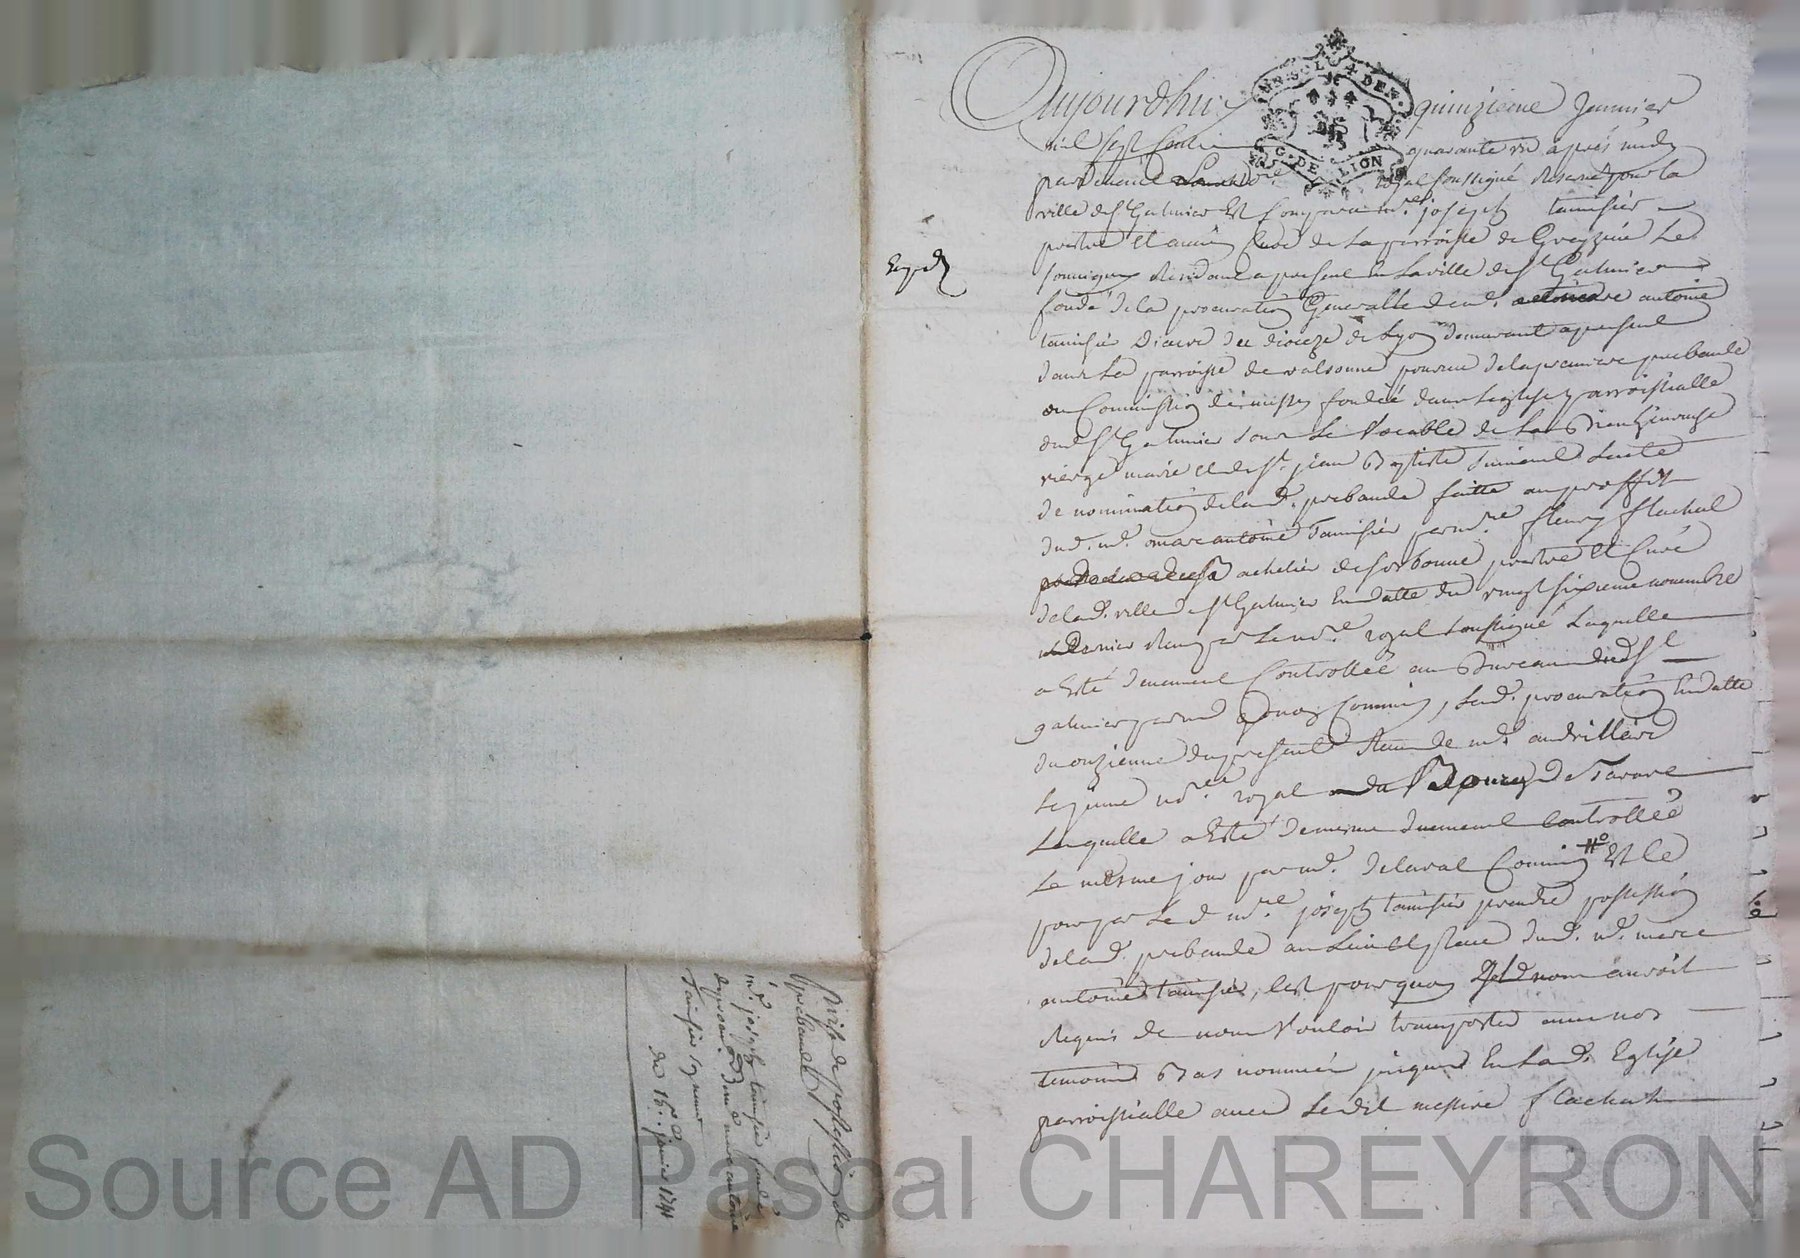 Aujourdhuy quinzieme Janvier
mil sept cent quarante un après midy
pardevant le no.re royal soussigné reservé pour la
ville de St Galmier est comparu m.re joseph tamisier
prestre et ancien curé de la parroisse de Grezieu le
fromage residant a present en la ville de St Galmier
fondé de la procuration Generalle de m.e antoine
tamisier Diacre du dioceze de Lyon demeurant a present
dans la parroisse de valsonne pourvu de la premiere prebande
ou Commission de messes fondée dans leglise parroissialle
dud. St Galmier sous le Vocable de la Bienheureuse
vierge marie et de St. jean Baptiste suivant lacte
de nomination de lad. prebande faitte au proffit
dud. m.e marc antoine Tamisier par m.re fleury flachat
bachelier de sorbonne prestre et Curé
de lad. ville de St Galmier en datte du vingt sixieme novembre
dernier reçu par le no.re royal soussigné laquelle
a esté duement Controllée au Bureau dud. St
galmier par m.e Commis, lad. procuration en datte
du onzieme du present reçue de m.e andrillard
le jeune no.re royal du Bourg de Tarare
laquelle a esté de meme duement controllée
le mesme jour par m.e delaval Commis Et le
pour par led. m.re joseph tamisier prendre possession
de lad. prebande au lieu et place dud. m.e marc
antoine tamisier, cest pourquoy il nous auroit
requis de nous vouloir transporter avec nos
temoins Bas nommés jusques en lad. Eglise
parroissialle avec ledit messire flachat
MR. SOL 4 DEN.
G. DE LION
Exped
Prise de possession de
prebande
m.e joseph tamisier fondé
de procur.on de m.e marc antoine
Tamisier
du 15.e janvier 1741
Source AD Pascal CHAREYRON